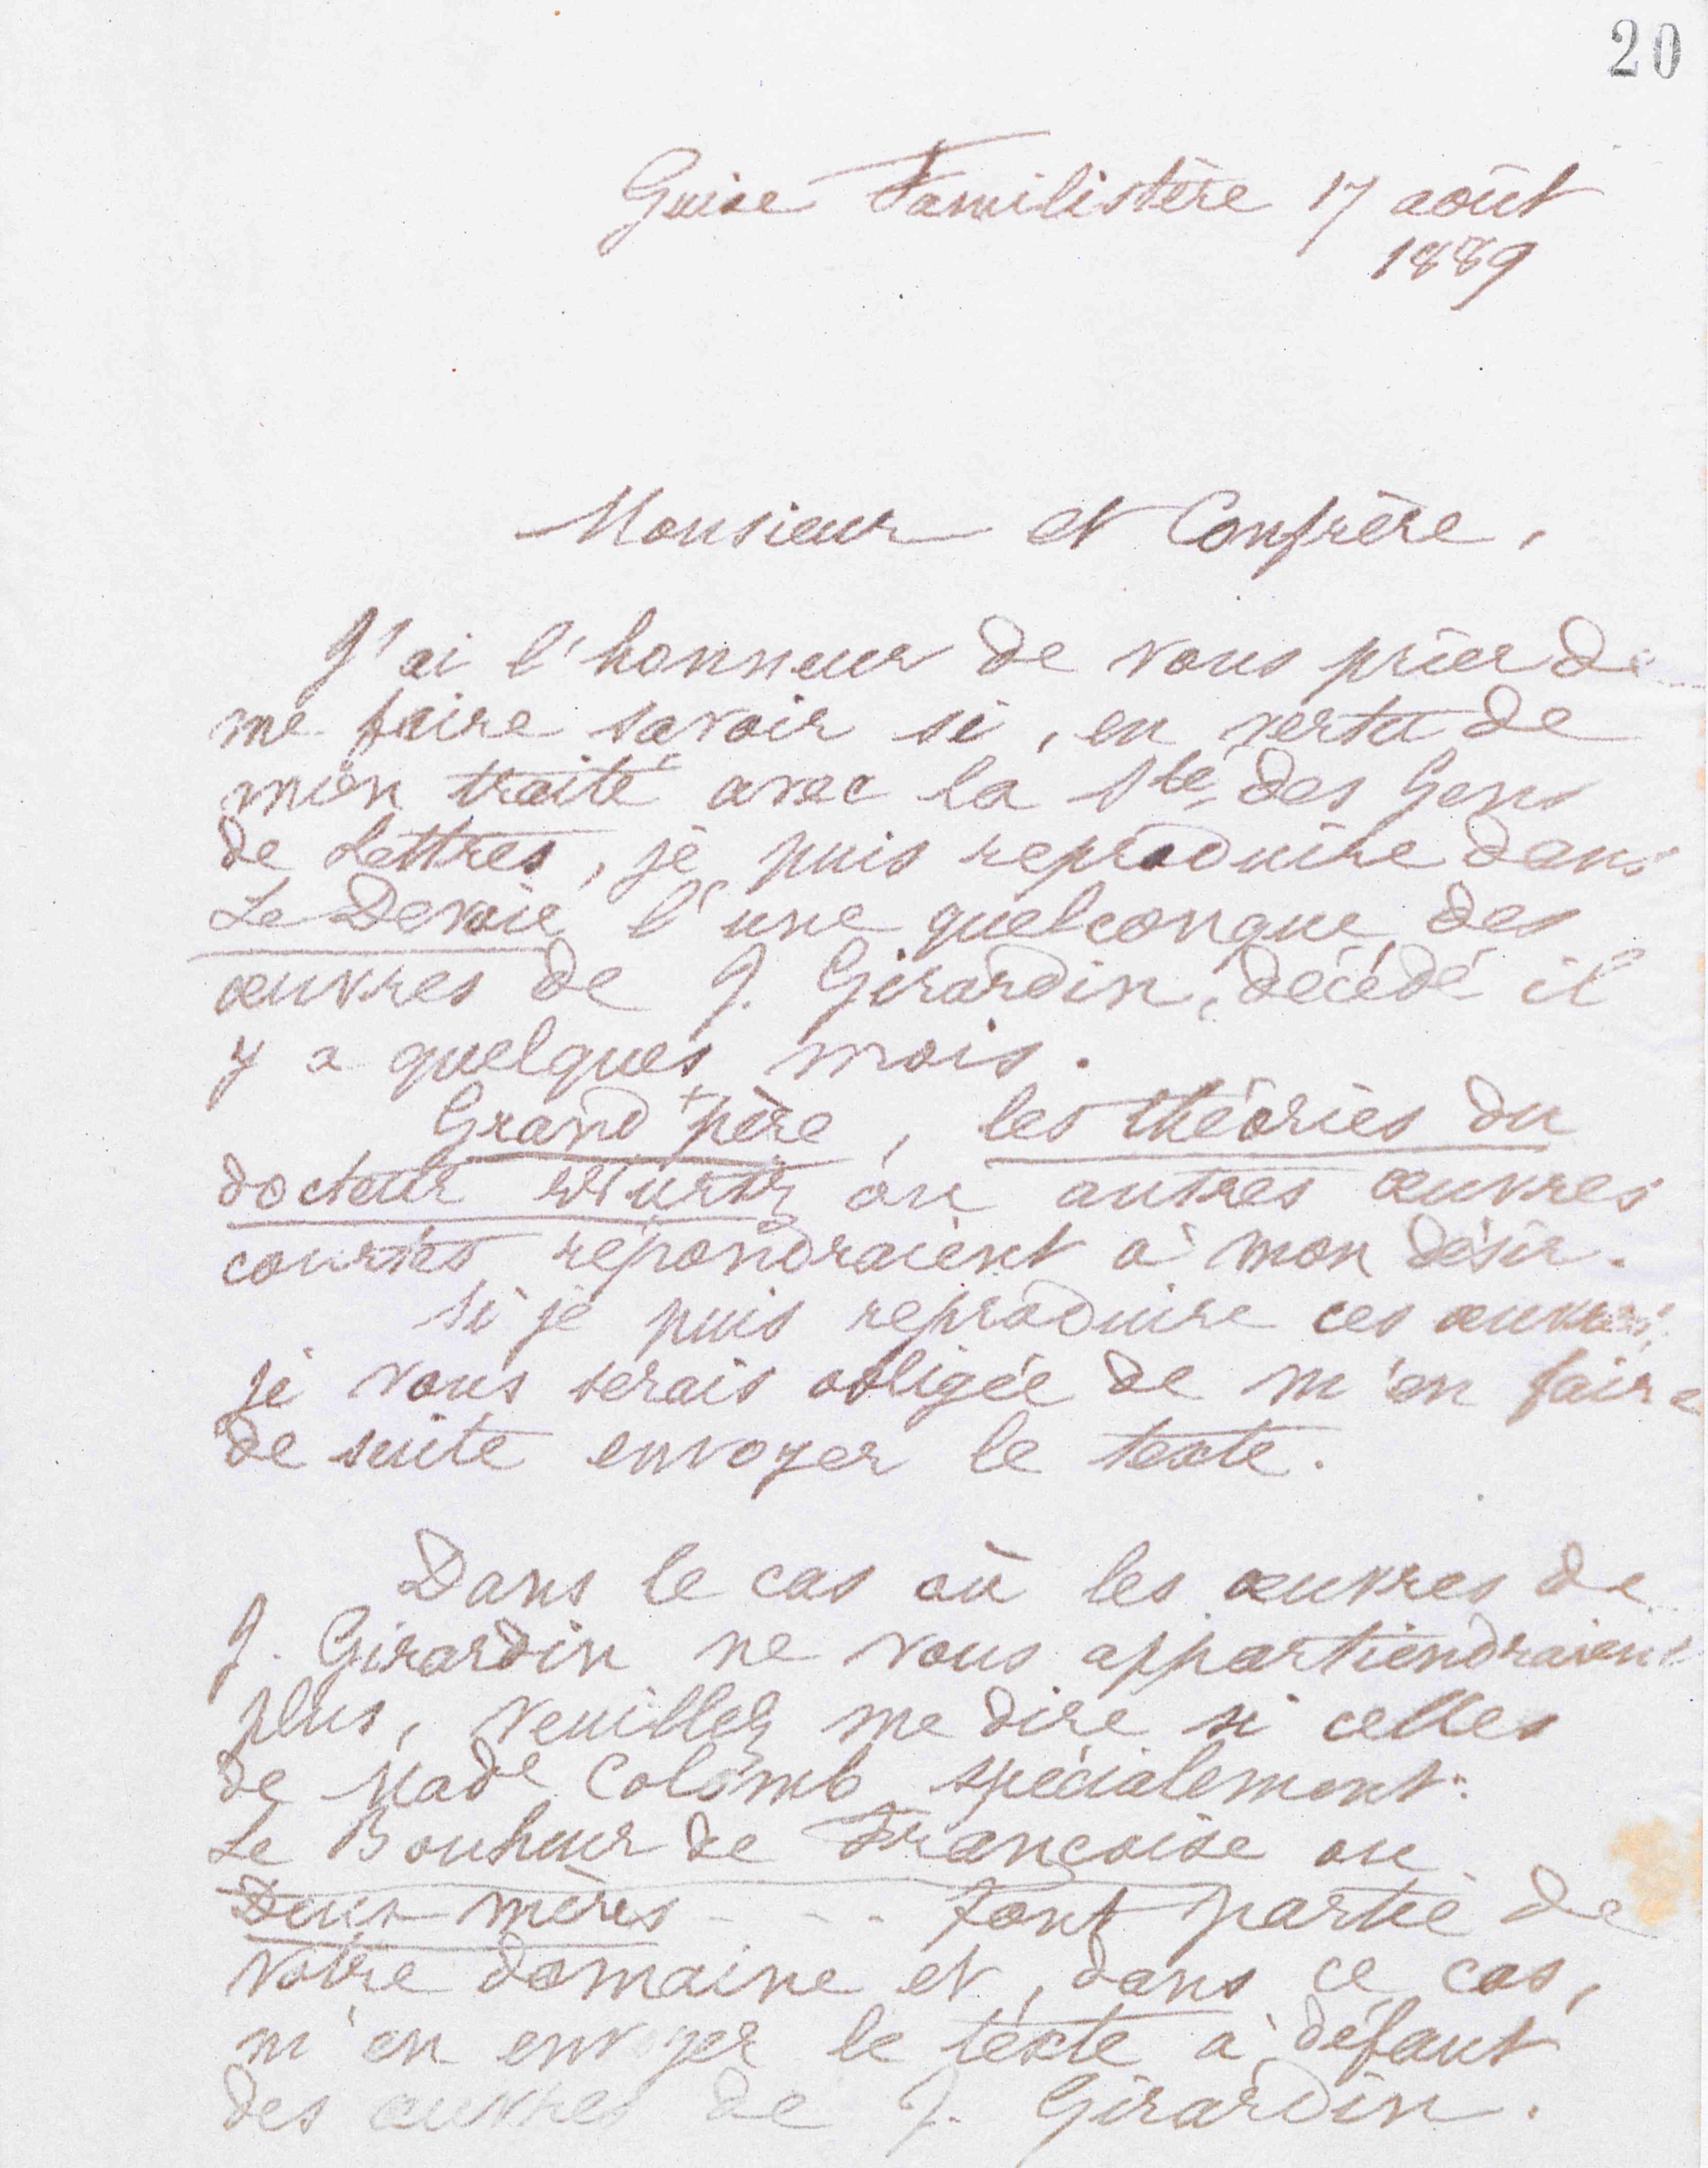 20
Guise Familistère 17 août
1889
Monsieur et Confrère,
J'ai l'honneur de vous prier de
me faire savoir si, en vertu de
mon traité avec la Sté des Gens
de Lettres, je puis reproduire dans
Le Devoir l'une quelconque des
œuvres de J. Girardin, décédé il
y a quelques mois.
Grand père, les théories du
docteur Wurtz ou autres œuvres
courtes répondraient à mon désir.
Si je puis reproduire ces œuvres,
je vous serais obligée de m'en faire
de suite envoyer le texte.
Dans le cas où les œuvres de
J. Girardin ne vous appartiendraient
plus, veuillez me dire si celles
de Made Colomb spécialement:
Le Bonheur de Françoise ou
Deux mères - - - font partie de
votre domaine et, dans ce cas,
m'en envoyer le texte à défaut
des œuvres de J. Girardin.